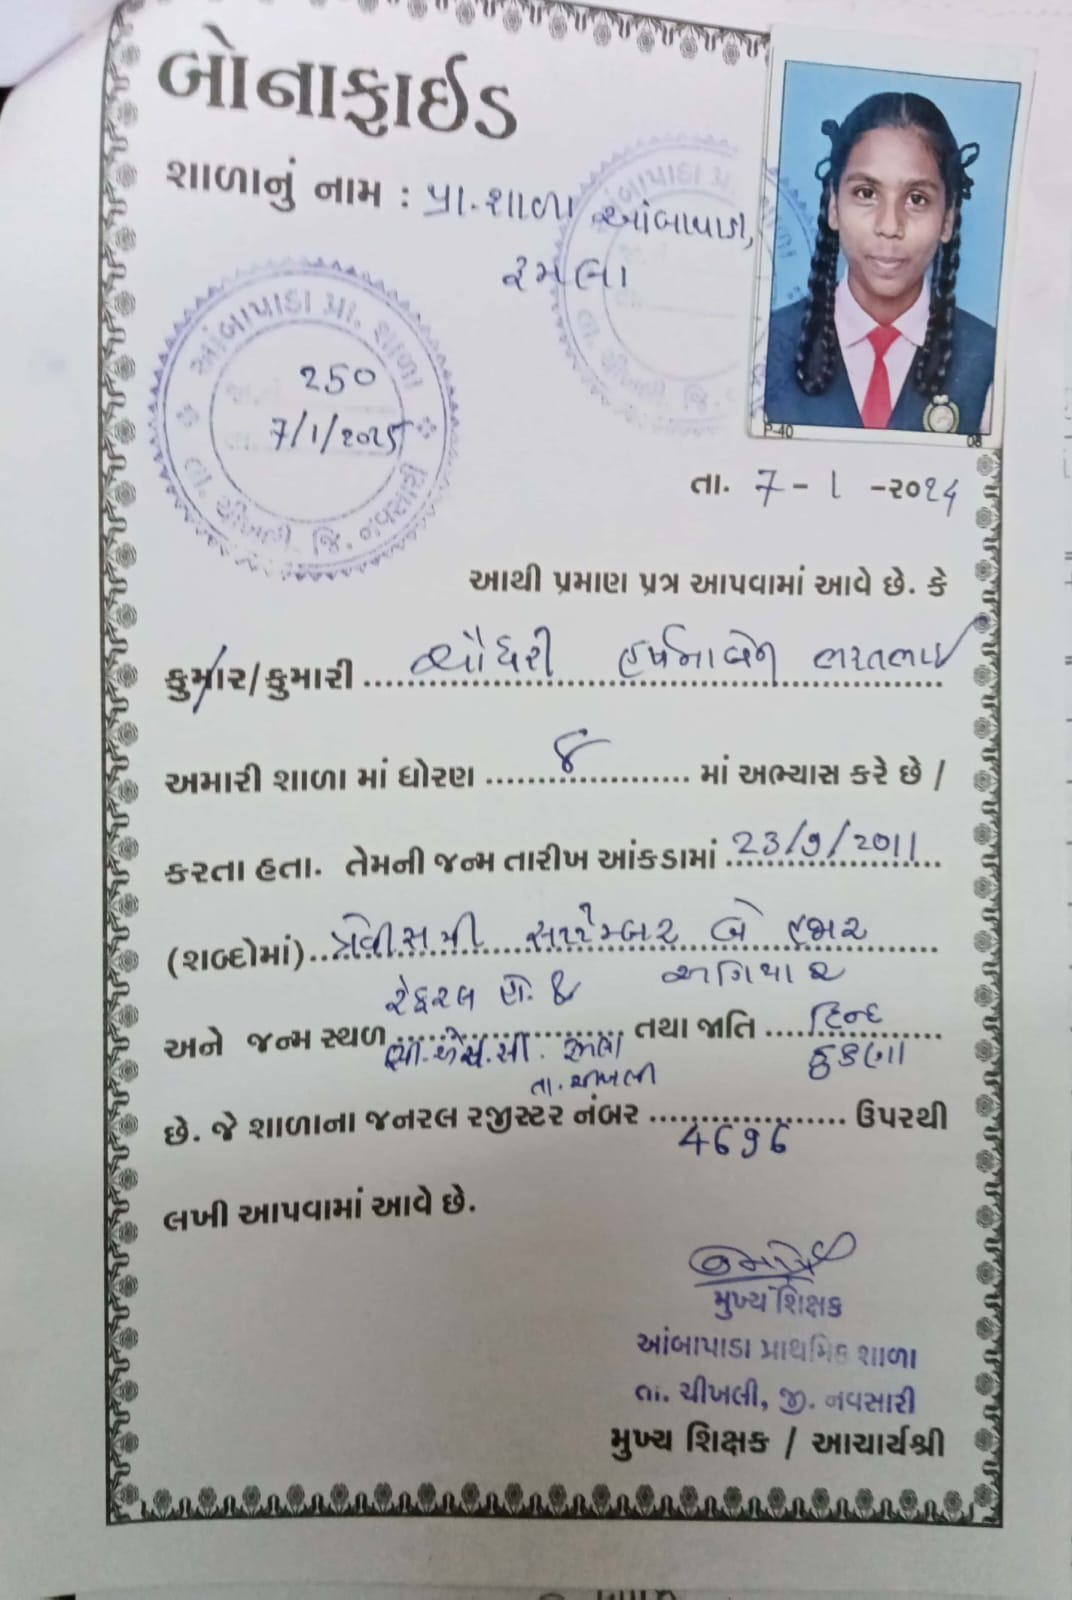 બોનાફાઈડ
શાળાનું નામ : પ્રા.શાળા આંબાપાડા,
રેમલા
આંબાપાડા પ્રા. શાળા
250
7/1/2025
તા. ચીખલી જિ. નવસારી
P-40
08
તા. 7 - 1 -૨૦24
આથી પ્રમાણ પત્ર આપવામાં આવે છે. કે
કુમાર/કુમારી ચૌધરી
અમારી શાળા માં ધોરણ ૮ માં અભ્યાસ કરે છે /
કરતા હતા. તેમની જન્મ તારીખ આંકડામાં 23/9/2011
(શબ્દોમાં) ત્રેવીસમી સપ્ટેમ્બર બે હજાર
અગિયાર
રેફરલ
અને જન્મ સ્થળ તથા જાતિ હિન્દુ
તા. ચીખલી કુકણા
છે. જે શાળાના જનરલ રજીસ્ટર નંબર 4696 ઉપરથી
લખી આપવામાં આવે છે.
મુખ્ય શિક્ષક
આંબાપાડા પ્રાથમિક શાળા
તા. ચીખલી, જી. નવસારી
મુખ્ય શિક્ષક / આચાર્યશ્રી